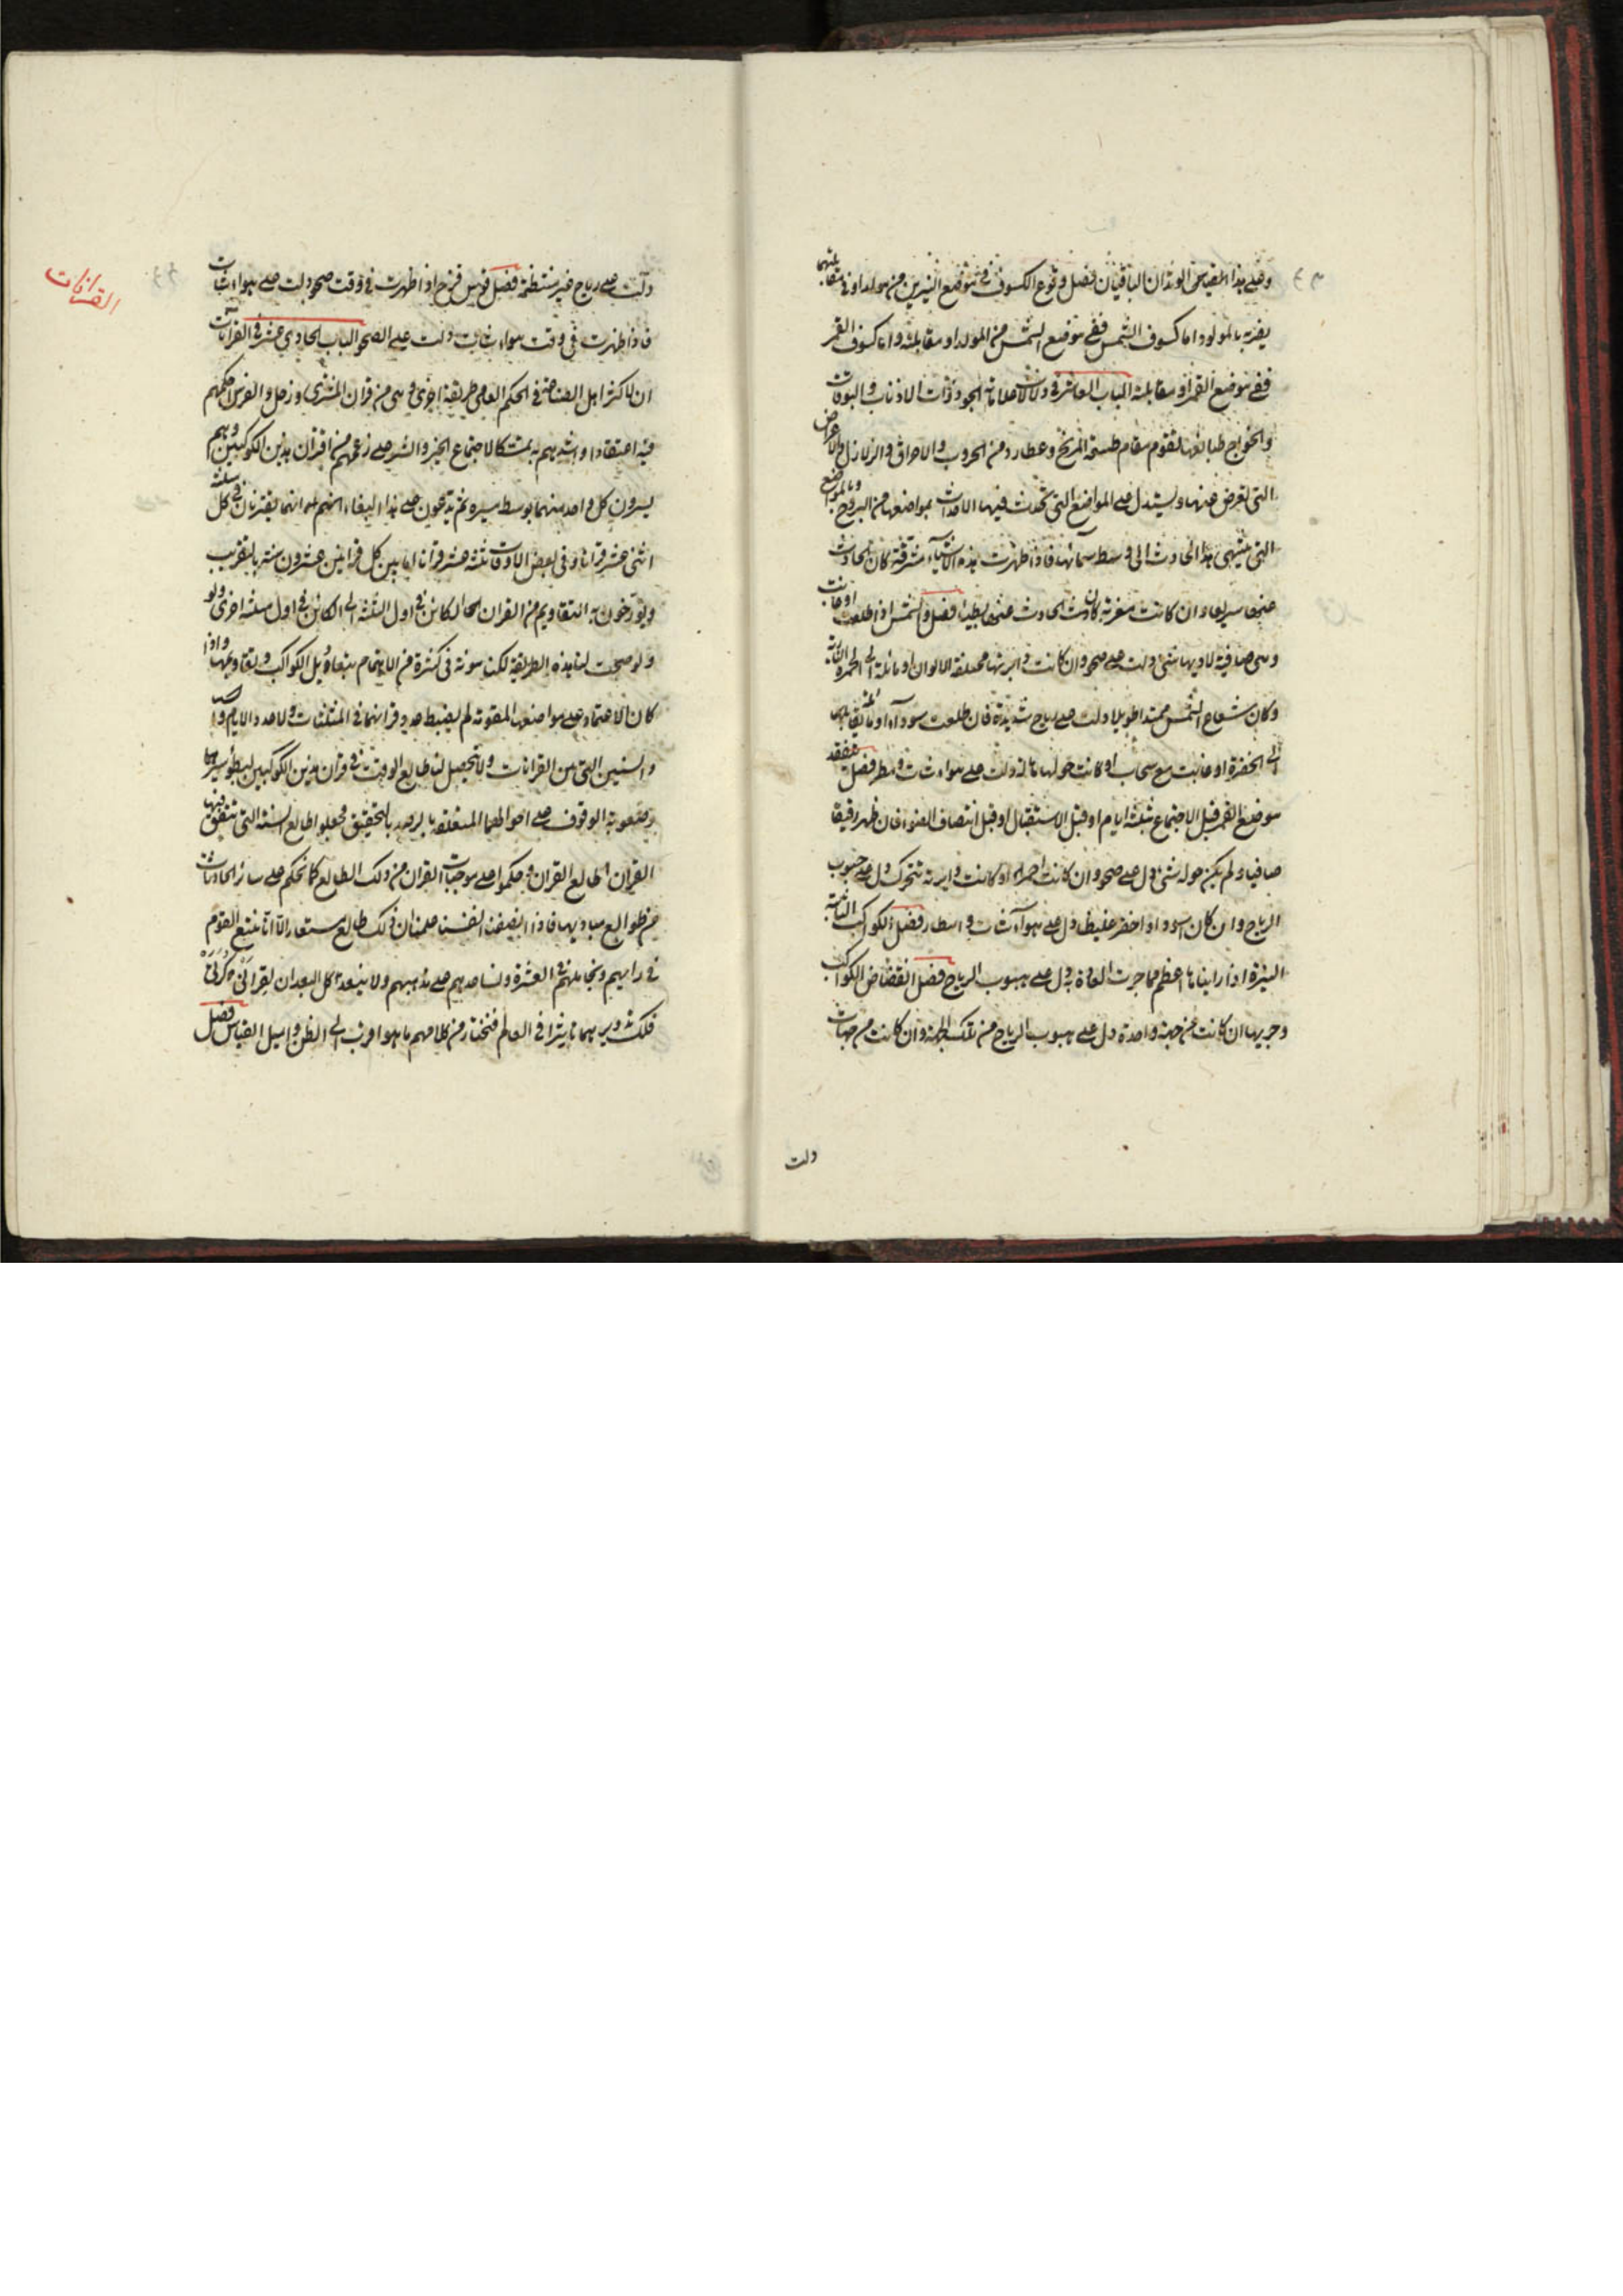 وعلى هذا القياس الوتدان الباقيان فصل وقوع الكسوف في موضع النيرين من مولد او في مقابلتهما
يضر بالمولود اما كسوف الشمس ففي موضع الشمس من المولد او مقابلته واما كسوف القمر
ففي موضع القمر او مقابلته الباب العاشر في دلالات علامات الجو ذوات الاذناب والبوقات
والخوارج طبائعها تقوم مقام طبيعة المريخ وعطارد من الحروب والاحراق والزلازل والاعراض
التي تعرض عنها ويستدل على المواضع التي تحدث فيها الاحداث بمواضعها من البروج وبالمواضع
التي ينتهي هذا الحادث الى وسط سمائها فاذا ظهرت هذه الاشياء مشرقة كان الحادث
عنها سريعا وان كانت مغربة كان الحادث عنها بطيئا فصل والشمس اذا طلعت او غابت
وهي صافية لا ديها شئ دلت على صحو وان كانت دايرتها مختلفة الالوان او مائلة الى الحمرة
وكان شعاع الشمس ممتدا طويلا دلت على رياح شديدة فان طلعت سودآء او
الى الخضرة او غابت مع سحاب او كانت حولها هالة دلت على هواء شات ومطر فصل تفقد
موضع القمر قبل الاجتماع بثلثة ايام او قبل الاستقبال او قبل انتصاف الضوء فان ظهر رقيقا
صافيا ولم يكن حوله شئ دل على صحو وان كانت احمر او كانت دايرته تتحرك دل على هبوب
الرياح وان كان اسود او اخضر غليظا دل على هوآء شات وامطار فصل الكواكب الثابتة
النيرة اذا رايناها اعظم مما جرت العادة به دل على هبوب الرياح فصل انقضاض الكواكب
وجريها ان كانت من جهة واحدة دل على هبوب الرياح من تلك الجهة وان كانت من جهات
دلت
القرانات
دلت على رياح غير منتظمة فصل قوس قزح اذا ظهرت في وقت صحو دلت على هواء شات
فاذا ظهرت في وقت هواء شات دلت على الصحو الباب الحادي عشر في القرآنات
ان لاكثر اهل الصناعة في الحكم العلمي طريقة اخرى وهي من قران المشتري وزحل والفرس احكمهم
فيه اعتقادا واشدهم به تمسكا لاجتماع الخير والشر على زعمهم من اقتران هذين الكوكبين وهم
يسيرون كل واحد منهما بوسط سيره ثم يدعون على هذا البناء انهم علموا انهما يقترنان في كل مثلثة
اثني عشر قرانا وفي بعض الاوقات ثلثة عشر قرانا اما بين كل قرانين عشرون سنة بالتقريب
ويورخون به التقاويم من القران الحا الكائن في اول المثلثة الى الكائن في اول مثلثة اخرى ولو
ولو صحت لنا هذه الطريقة لكن مونة في كثرة من الاهتمام بتعاديل الكواكب وتقاويمها واذا
كان الاعتماد على مواضعها المقومة لم يضبط عدد قرانهما في المثلثات ولا عدد الايام و
والسنين التي من القرانات ولا تحصل لنا طالع الوقت في قران هذين الكوكبين لبطؤ سيرهما
وصعوبة الوقوف على احوالهما المتعلقة بالرصد بالتحقيق فجعلوا طالع السنة التي تتفق فيها
القران طالع القران وحكموا على موجبات القران من ذلك الطالع كما نحكم على سائر الحادثات
من طوالع مباديها فاذا انصفنا انفسنا علمنا ان ذلك طالع مستعار الا انا نتبع القوم
في رايهم ونجاملهم في العشرة ونساعدهم على مذهبهم ولا يبعد كل البعد ان لقراني مركزي
فلك تدويريهما تاثيرا في العالم فنختار من كلامهم ما هو اقرب الى الظن واميل القياس فصل